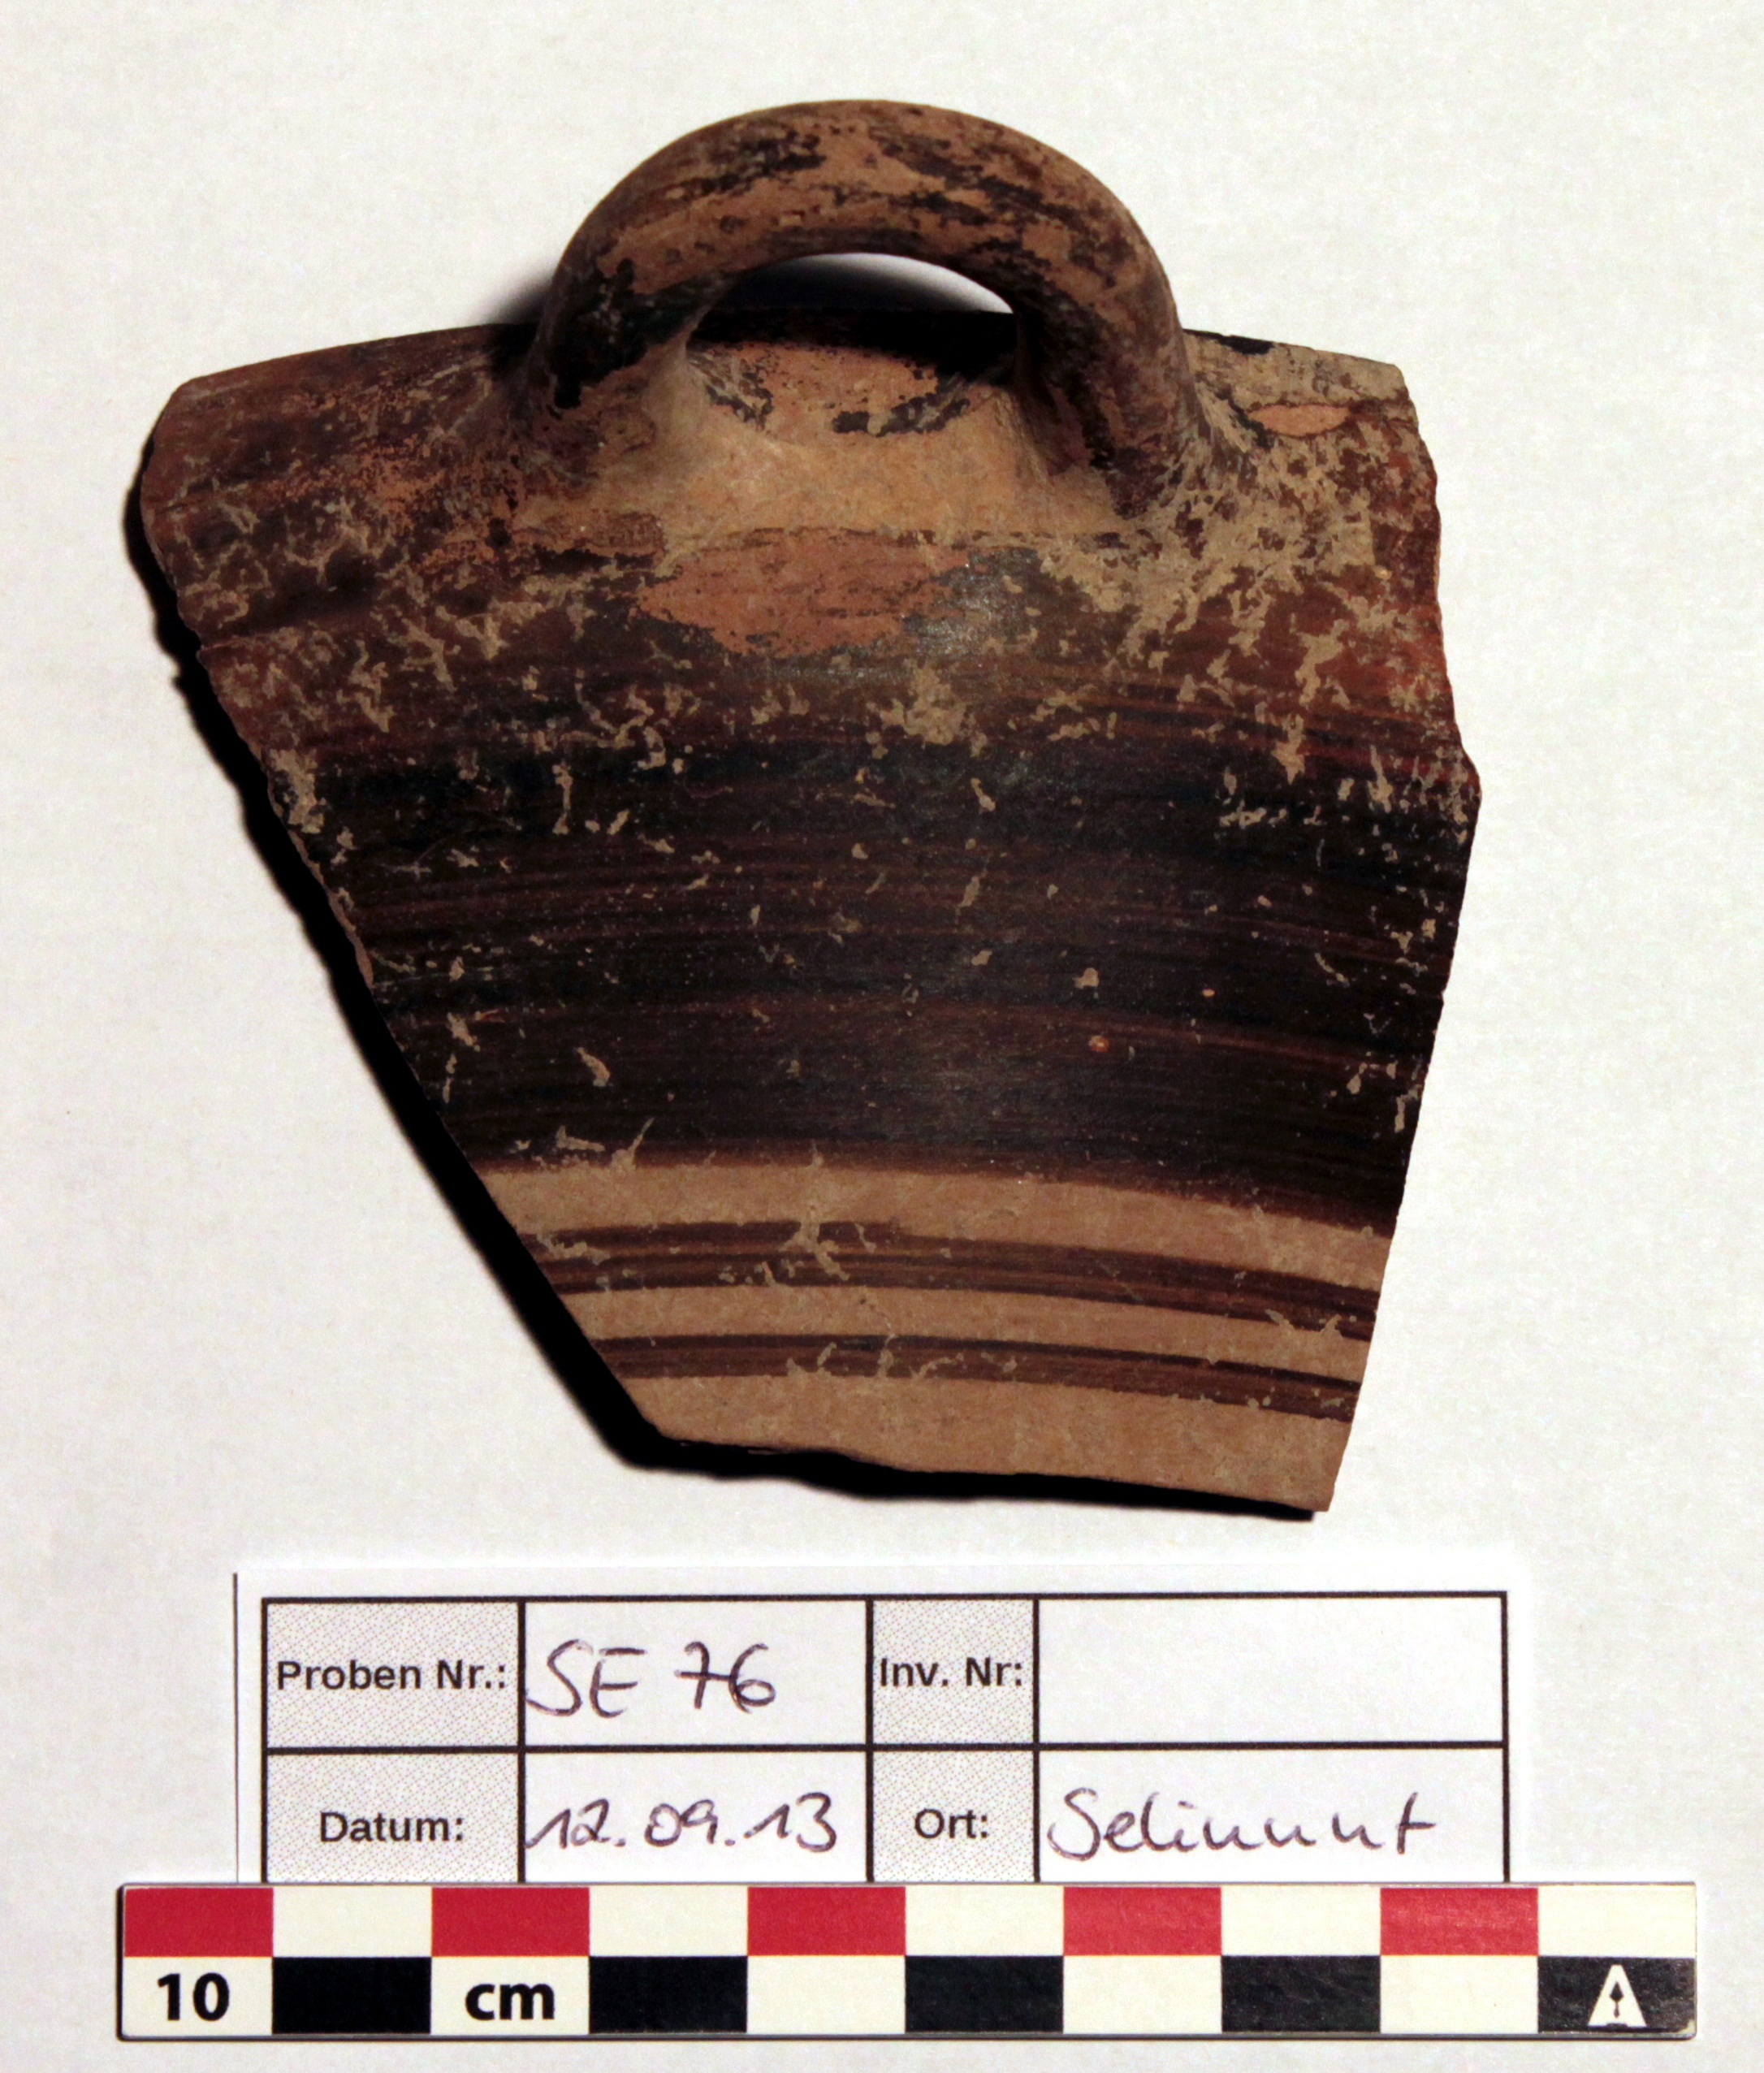 Proben Nr.: SE 76 Inv. Nr:
Datum: 12.09.13 Ort: Selinunt
10 cm